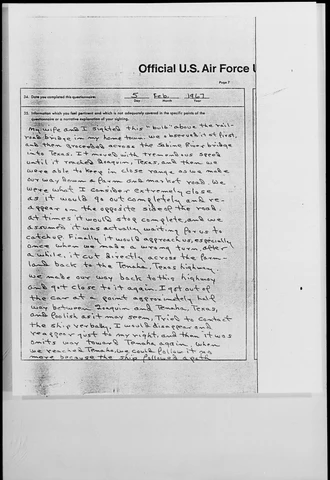 Official U.S. Air Force U
Page 7
24. Date you completed this questionnaire:
5 Feb 1967
Day Month Year
25. Information which you feel pertinent and which is not adequately covered in the specific points of the
questionnaire or a narrative explanation of your sighting.
My wife and I sighted this "bulb" above the rail-
road bridge in my home town. We observed it at first,
and then proceeded across the Sabine River bridge
into Texas. It moved with tremendous speed
until it reached Joaquin, Texas, and then we
were able to keep in close range as we made
our way down a farm and market road. We
were what I consider extremely close
as it would go out completely and re-
appear on the opposite side of the road.
At times it would stop complete, and we
assume it was actually waiting for us to
catchup. Finally it would approach us, especially
once when we made a wrong turn, after
a while, it cut directly across the farm-
land back to the Tenaha, Texas highway.
We made our way back to this highway
and got close to it again. I got out of
the car at a point approximately half
way between Joaquin and Tenaha, Texas,
and foolish as it may seem, tried to contact
the ship verbaly. I would disappear and
reappear just to my right, and then it was
on its way toward Tenaha again. When
we reached Tenaha, we could follow it no
more because the ship followed a path